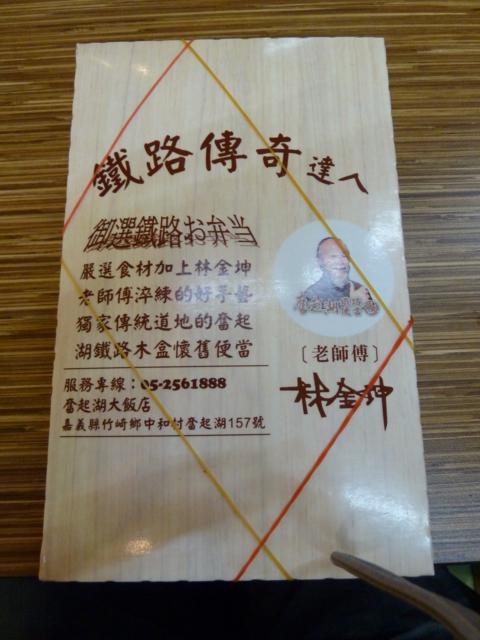 鐵路傳奇達人
御選鐵路お弁当
嚴選食材加上林金坤
老師傅淬練的好手藝
獨家傳統道地的奮起
湖鐵路木盒懷舊便當
服務專線：05-2561888
奮起湖大飯店
嘉義縣竹崎鄉中和村奮起湖157號
〔老師傅〕
林金坤